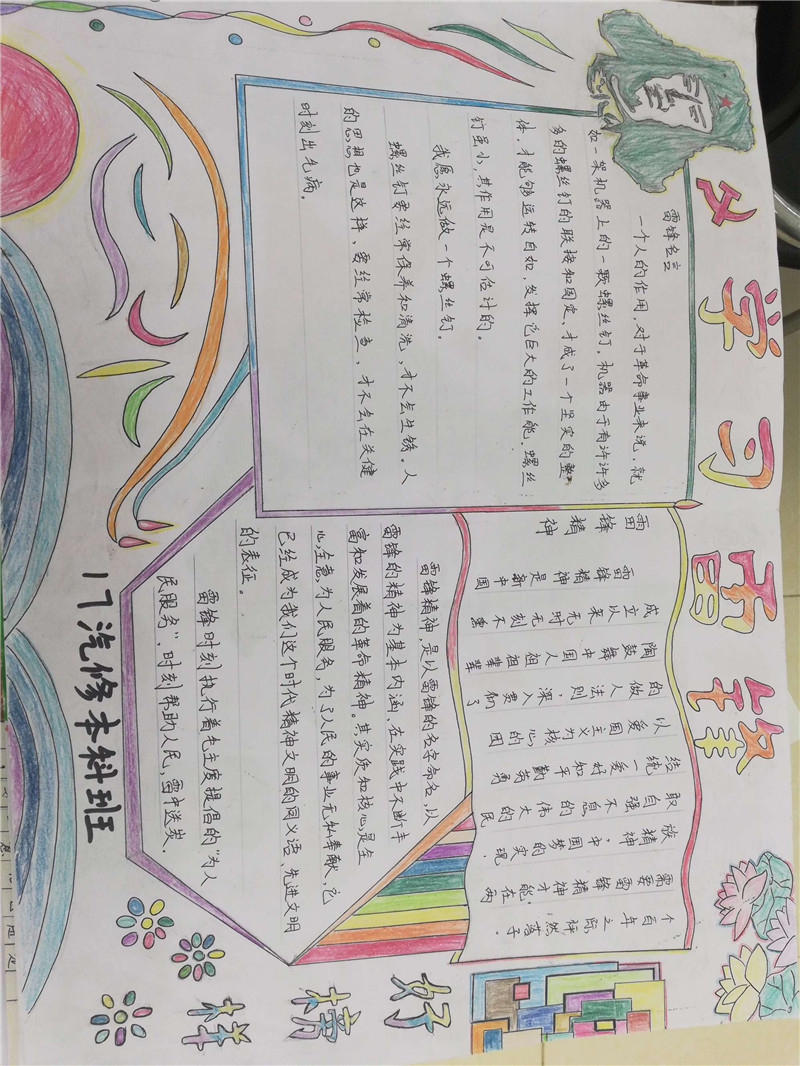 学习雷锋
好榜样
雷锋名言
一个人的作用，对于革命事业来说，就
如一架机器上的一颗螺丝钉。机器由于有许许多
多的螺丝钉的联接和固定，才成了一个坚实的整
体，才能够运转自如，发挥它巨大的工作能。螺丝
钉虽小，其作用是不可估计的。
我愿永远做一个螺丝钉。
螺丝钉要经常保养和清洗，才不会生锈。人
的思想也是这样，要经常检查，才不会在关键
时刻出毛病。
雷锋精神
雷锋精神是新中国
成立以来无时无刻不熏
陶鼓舞中国人祖祖辈辈
的做人法则，深入贯彻了
以爱国主义为核心的团
结统一爱好和平勤劳勇
敢自强不息的伟大的民
族精神，中国梦的实现，
需要雷锋精神才能在两
个百年之际砰然落子.
雷锋精神，是以雷锋的名字命名，以
雷锋的精神为基本内涵、在实践中不断丰
富和发展着的革命精神。其实质和核心是全
心全意为人民服务，为了人民的事业无私奉献、它
已经成为我们这个时代精神文明的同义语、先进文明
的表征。
雷锋时刻执行着毛主席提倡的“为人
民服务”，时刻帮助人民，雪中送炭.
17汽修本科班